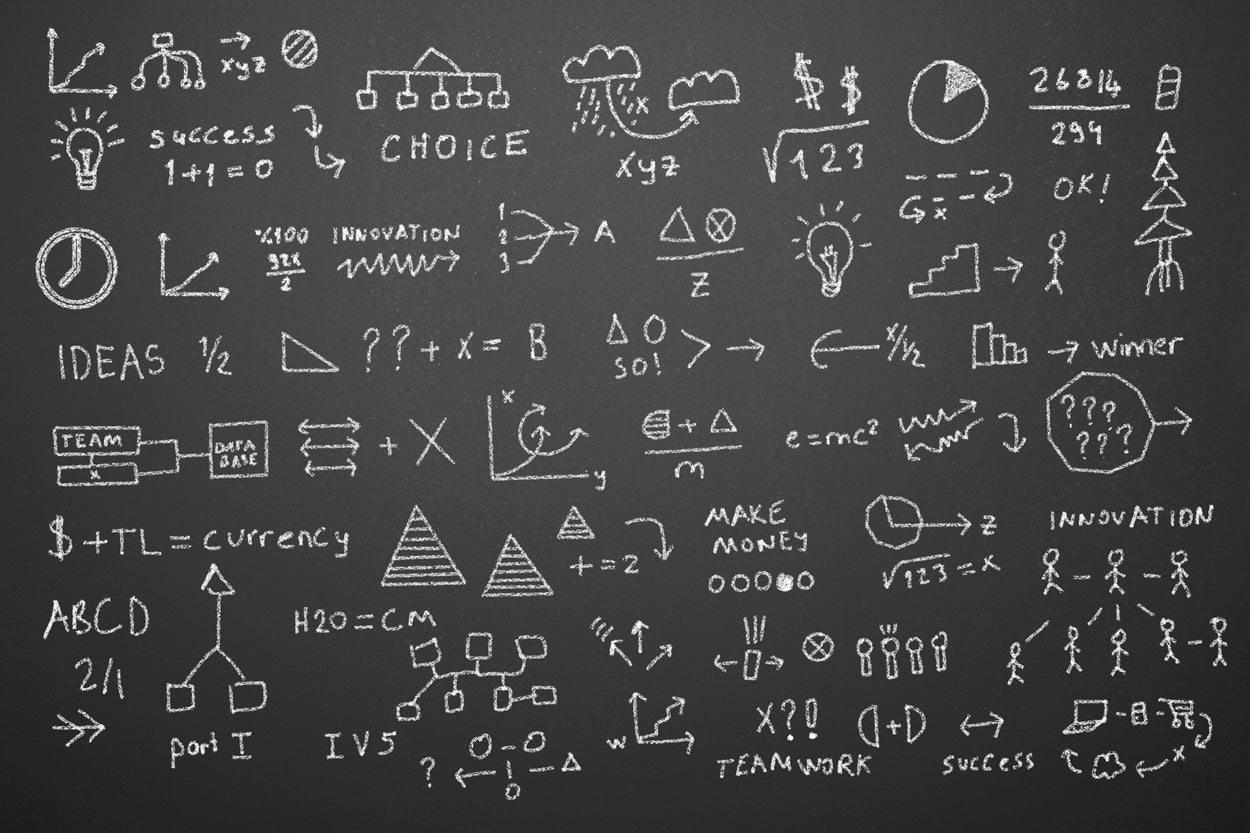 xyz
success
1+1=0
CHOICE
x
xyz
$ $
√123
26314
294
x
OK!
%100
32x
2
INNOVATION
1
2
3
A
Z
IDEAS
1/2
??+x=B
SO!
winner
TEAM
x
DATA
BASE
+X
x
y
+
m
e=mc²
???
???
$+TL=currency
+=2
MAKE
MONEY
z
√123=x
INNOVATION
ABCD
2/1
H2O=CM
part I
IV5
?
w
X?!
TEAMWORK
+
success
x